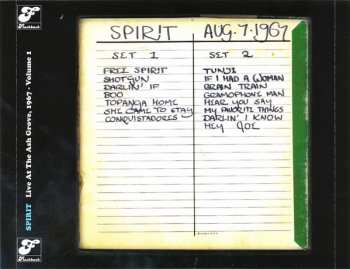 Flashback
SPIRIT Live At The Ash Grove, 1967 - Volume 1
Flashback
SPIRIT AUG. 7. 1967
SET 1
FREE SPIRIT
SHOTGUN
DARLIN' IF
BOO
TOPANGA HOME
SHE CAME TO STAY
CONQUISTADORES
SET 2
TUNJI
IF I HAD A WOMAN
BRAIN TRAIN
GRAMOPHONE MAN
HEAR YOU SAY
MY FAVORITE THINGS
DARLIN' I KNOW
HEY JOE